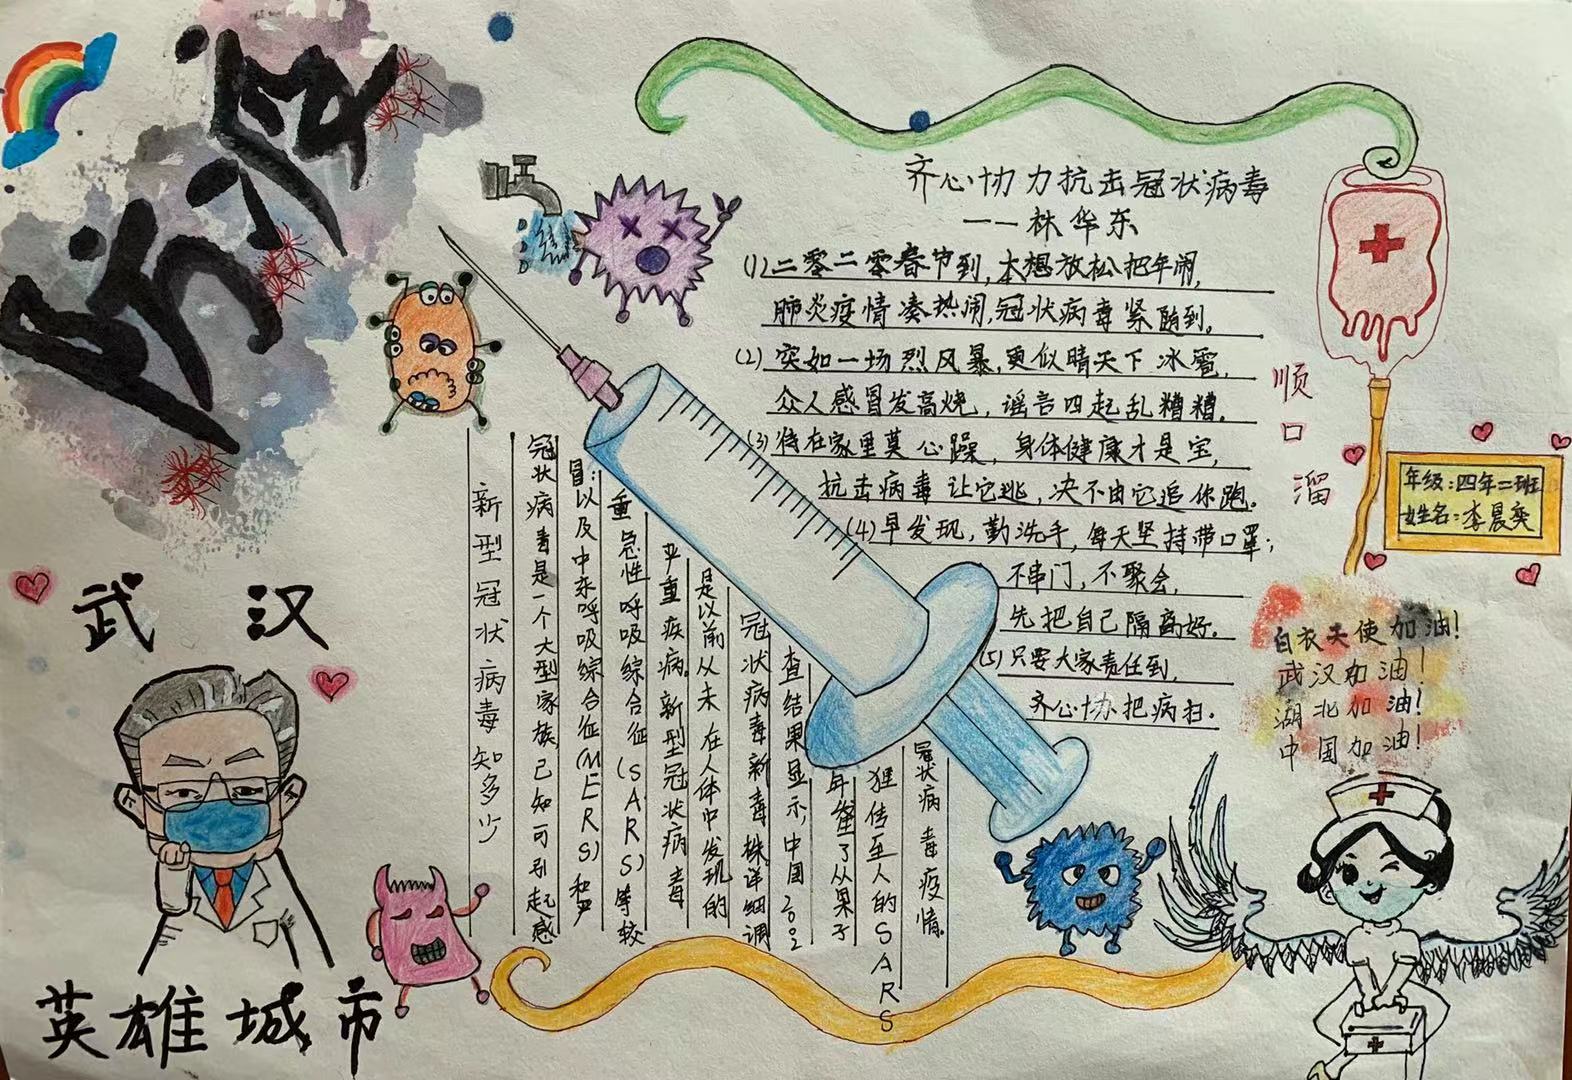 防疫
齐心协力抗击冠状病毒
——林华东
(1)二零二零春节到，本想放松把年闹，
肺炎疫情凑热闹，冠状病毒紧随到。
(2)突如一场烈风暴，更似晴天下冰雹，
众人感冒发高烧，谣言四起乱糟糟。
(3)待在家里莫心躁，身体健康才是宝，
抗击病毒让它逃，决不由它追你跑。
(4)早发现，勤洗手，每天坚持带口罩；
不串门，不聚会，
先把自己隔离好。
(5)只要大家责任到，
齐心协把病扫。
顺口溜
年级：四年二班
姓名：李晨奕
白衣天使加油！
武汉加油！
湖北加油！
中国加油！
新型冠状病毒知多少
冠状病毒是一个大型家族已知可引起感
冒：以及中东呼吸综合征(MERS)和严
重急性呼吸综合征(SARS)等较
严重疾病。新型冠状病毒
是以前从未在人体中发现的
冠状病毒新毒株。详细调
查结果显示，中国2002
年发了从果子
狸传至人的SARS
冠状病毒疫情。
武汉
英雄城市